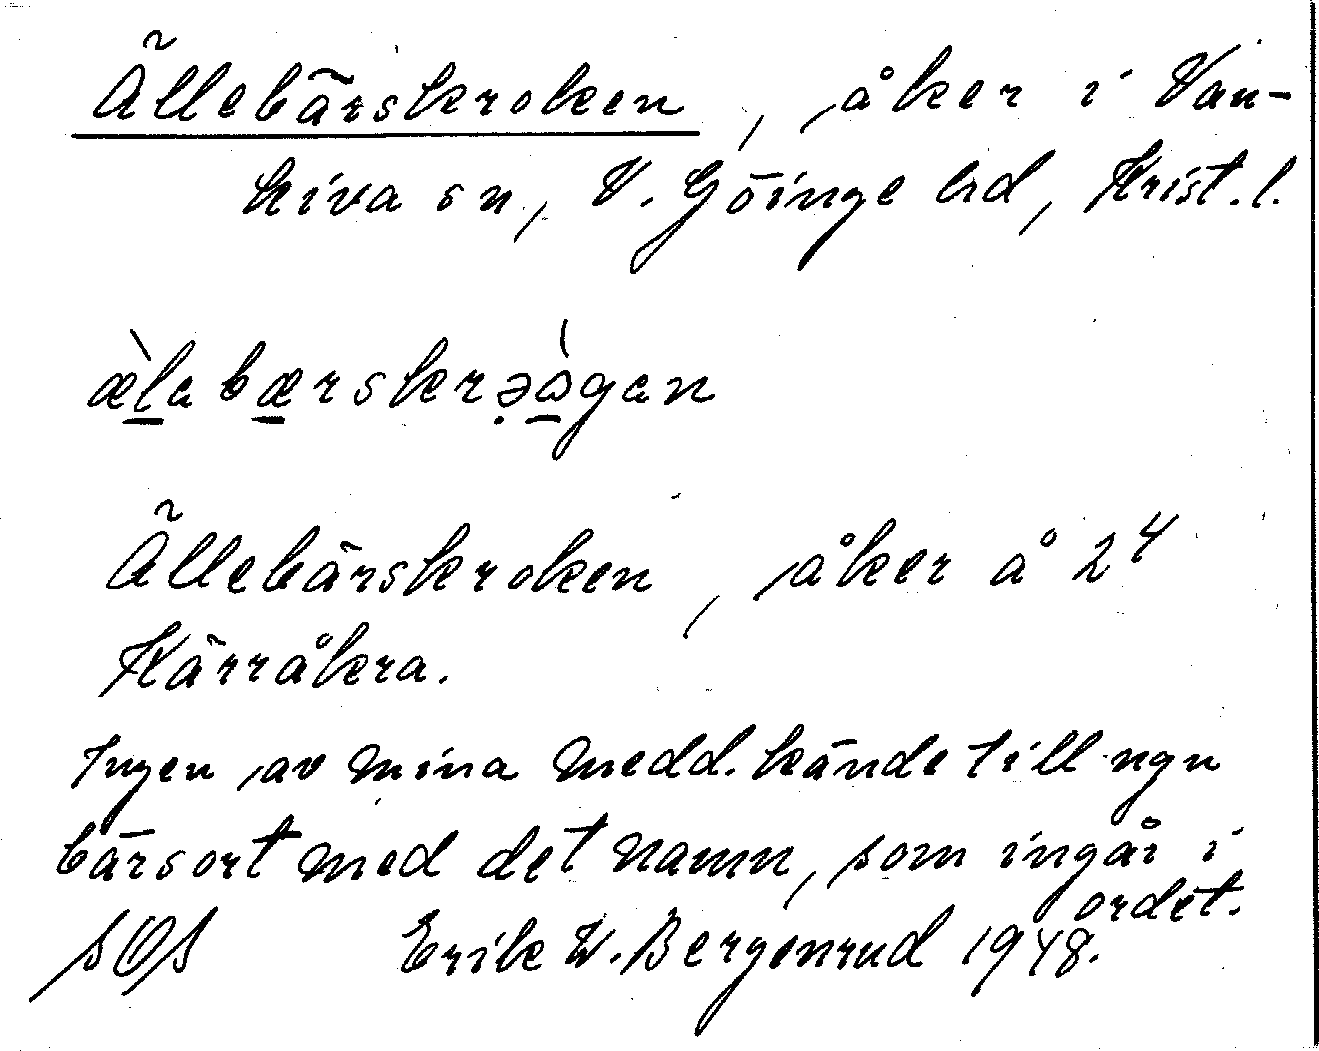 Ällebärskroken, åker i Van-
kiva sn, V. Göinge hd, Krist. l.
æ̀labærskrəɷ̀gan
Ällebärskroken, åker å 2⁴
Kärråkra.
Ingen av mina medd. kände till ngn
bärsort med det namn, som ingår i
ordet.
SOS Erik W. Bergenrud 1948.